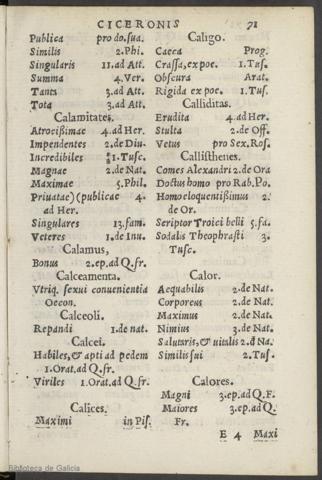 CICERONIS 71
Publica pro do.sua.
Similis 2.Phi.
Singularis 11.ad Att.
Summa 4.Ver.
Tanta 3.ad Att.
Tota 3.ad Att.
Calamitates.
Atrocißimae 4.ad Her.
Impendentes 2.de Diu.
Incredibiles 1.Tusc.
Magnae 2.de Nat.
Maximae 5.Phil.
Priuatae)(publicae 4.
ad Her.
Singulares 13.fam.
Veteres 1.de Inu.
Calamus,
Bonus 2.ep.ad Q.fr.
Calceamenta.
Vtriq. sexui conuenientia
Oecon.
Calceoli.
Repandi 1.de nat.
Calcei.
Habiles,& apti ad pedem
1.Orat.ad Q.fr.
Viriles 1.Orat.ad Q.fr.
Calices.
Maximi in Pis.
Caligo.
Caeca Prog.
Crassa, ex poe. 1.Tus.
Obscura Arat.
Rigida ex poe. 1.Tus.
Calliditas.
Erudita 4.ad Her.
Stulta 2.de Off.
Vetus pro Sex.Ros.
Callisthenes.
Comes Alexandri 2.de Ora
Doctus homo pro Rab.Po.
Homo eloquentißimus 2.
de Or.
Scriptor Troici belli 5.fa.
Sodalis Theophrasti 3.
Tusc.
Calor.
Aequabilis 2.de Nat.
Corporeus 2.de Nat.
Maximus 2.de Nat.
Nimius 3.de Nat.
Salutaris,& uitalis 2.d Na.
Similis sui 2.Tus.
Calores.
Magni 3.ep.ad Q.F.
Maiores 3.ep.ad Q.
Fr.
E 4 Maxi
Biblioteca de Galicia